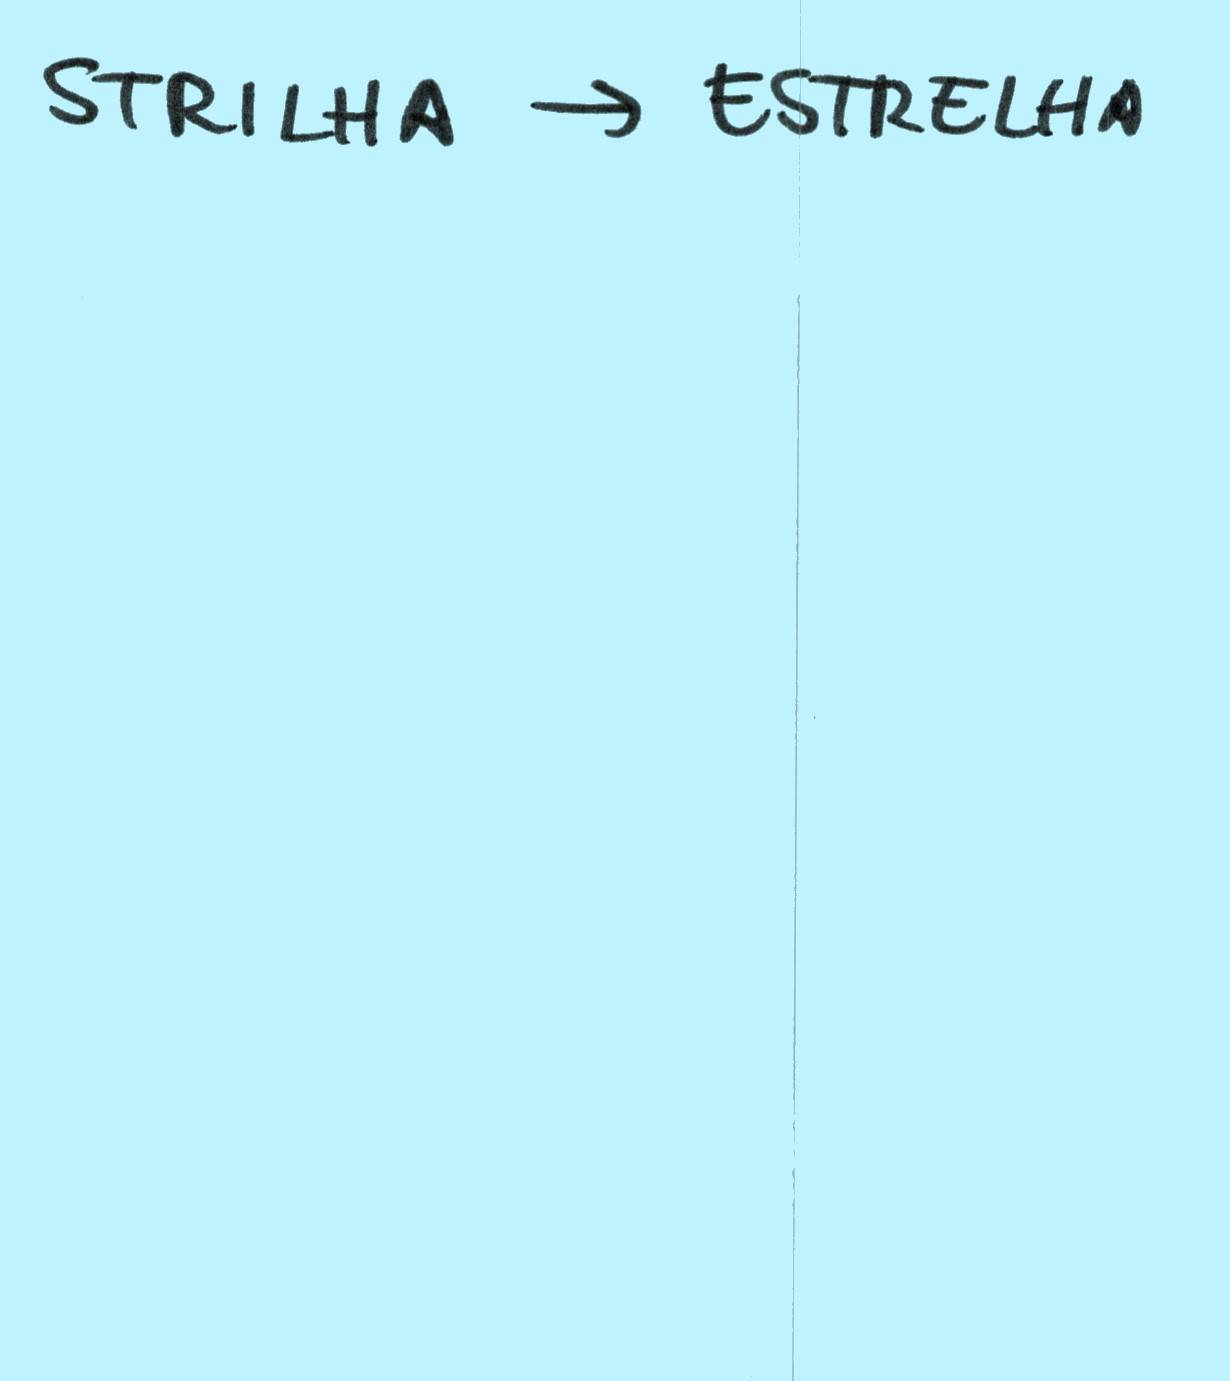 STRILHA → ESTRELHA